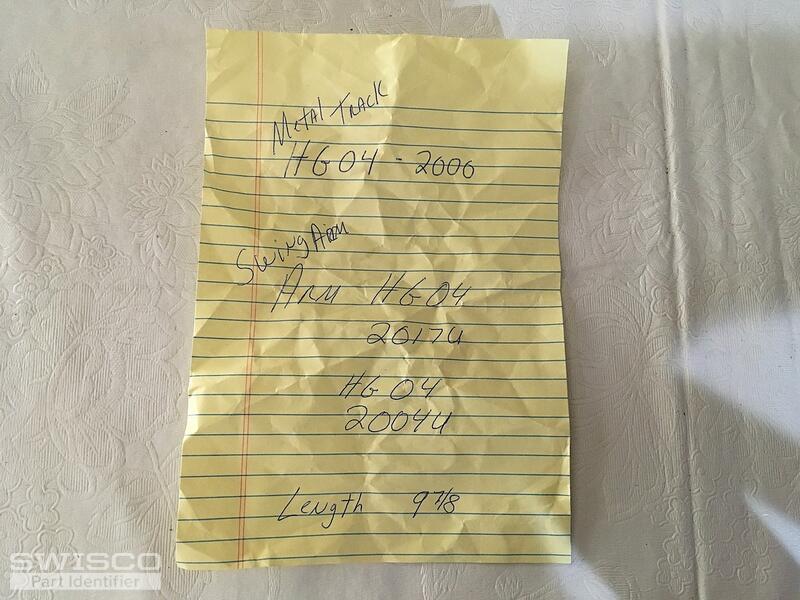 Metal Track
HG04 - 2000
Swing Arm
Arm HG04
20174
HG04
20044
Length 9 7/8
SWISCO
Part Identifier